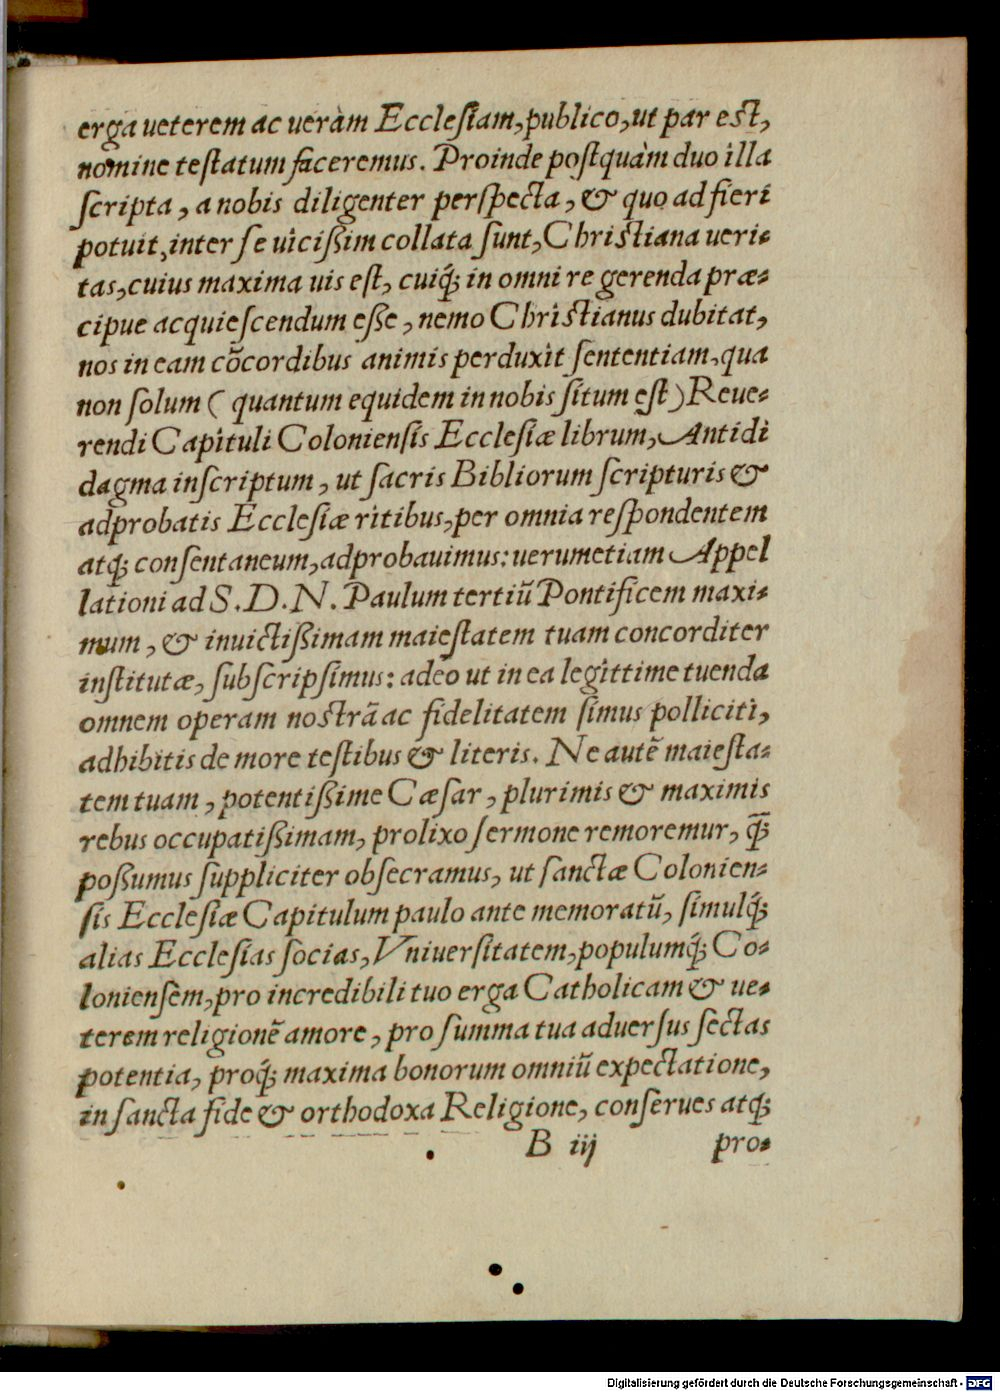 erga ueterem ac ueràm Ecclesiam, publico, ut par est,
nomine testatum faceremus. Proinde postquàm duo illa
scripta, a nobis diligenter perspecta, & quo ad fieri
potuit, inter se uicißim collata sunt, Christiana ueri-
tas, cuius maxima uis est, cuiq́; in omni re gerenda præ-
cipue acquiescendum eße, nemo Christianus dubitat,
nos in eam cõcordibus animis perduxit sententiam, qua
non solum ( quantum equidem in nobis situm est ) Reue-
rendi Capituli Coloniensis Ecclesiæ librum, Antidi
dagma inscriptum, ut sacris Bibliorum scripturis &
adprobatis Ecclesiæ ritibus, per omnia respondentem
atq́; consentaneum, adprobauimus: uerumetiam Appel
lationi ad S. D. N. Paulum tertiũ Pontificem maxi-
mum, & inuictißimam maiestatem tuam concorditer
institutæ, subscripsimus: adeo ut in ea legittime tuenda
omnem operam nostrã ac fidelitatem simus polliciti,
adhibitis de more testibus & literis. Ne autẽ maiesta-
tem tuam, potentißime Cæsar, plurimis & maximis
rebus occupatißimam, prolixo sermone remoremur, q̃;
poßumus suppliciter obsecramus, ut sanctæ Colonien-
sis Ecclesiæ Capitulum paulo ante memoratũ, simulq́;
alias Ecclesias socias, Vniuersitatem, populumq́; Co-
loniensem, pro incredibili tuo erga Catholicam & ue-
terem religionẽ amore, pro summa tua aduersus sectas
potentia, proq́; maxima bonorum omniũ expectatione,
in sancta fide & orthodoxa Religione, conserues atq́;
B iij pro-
Digitalisierung gefördert durch die Deutsche Forschungsgemeinschaft - DFG